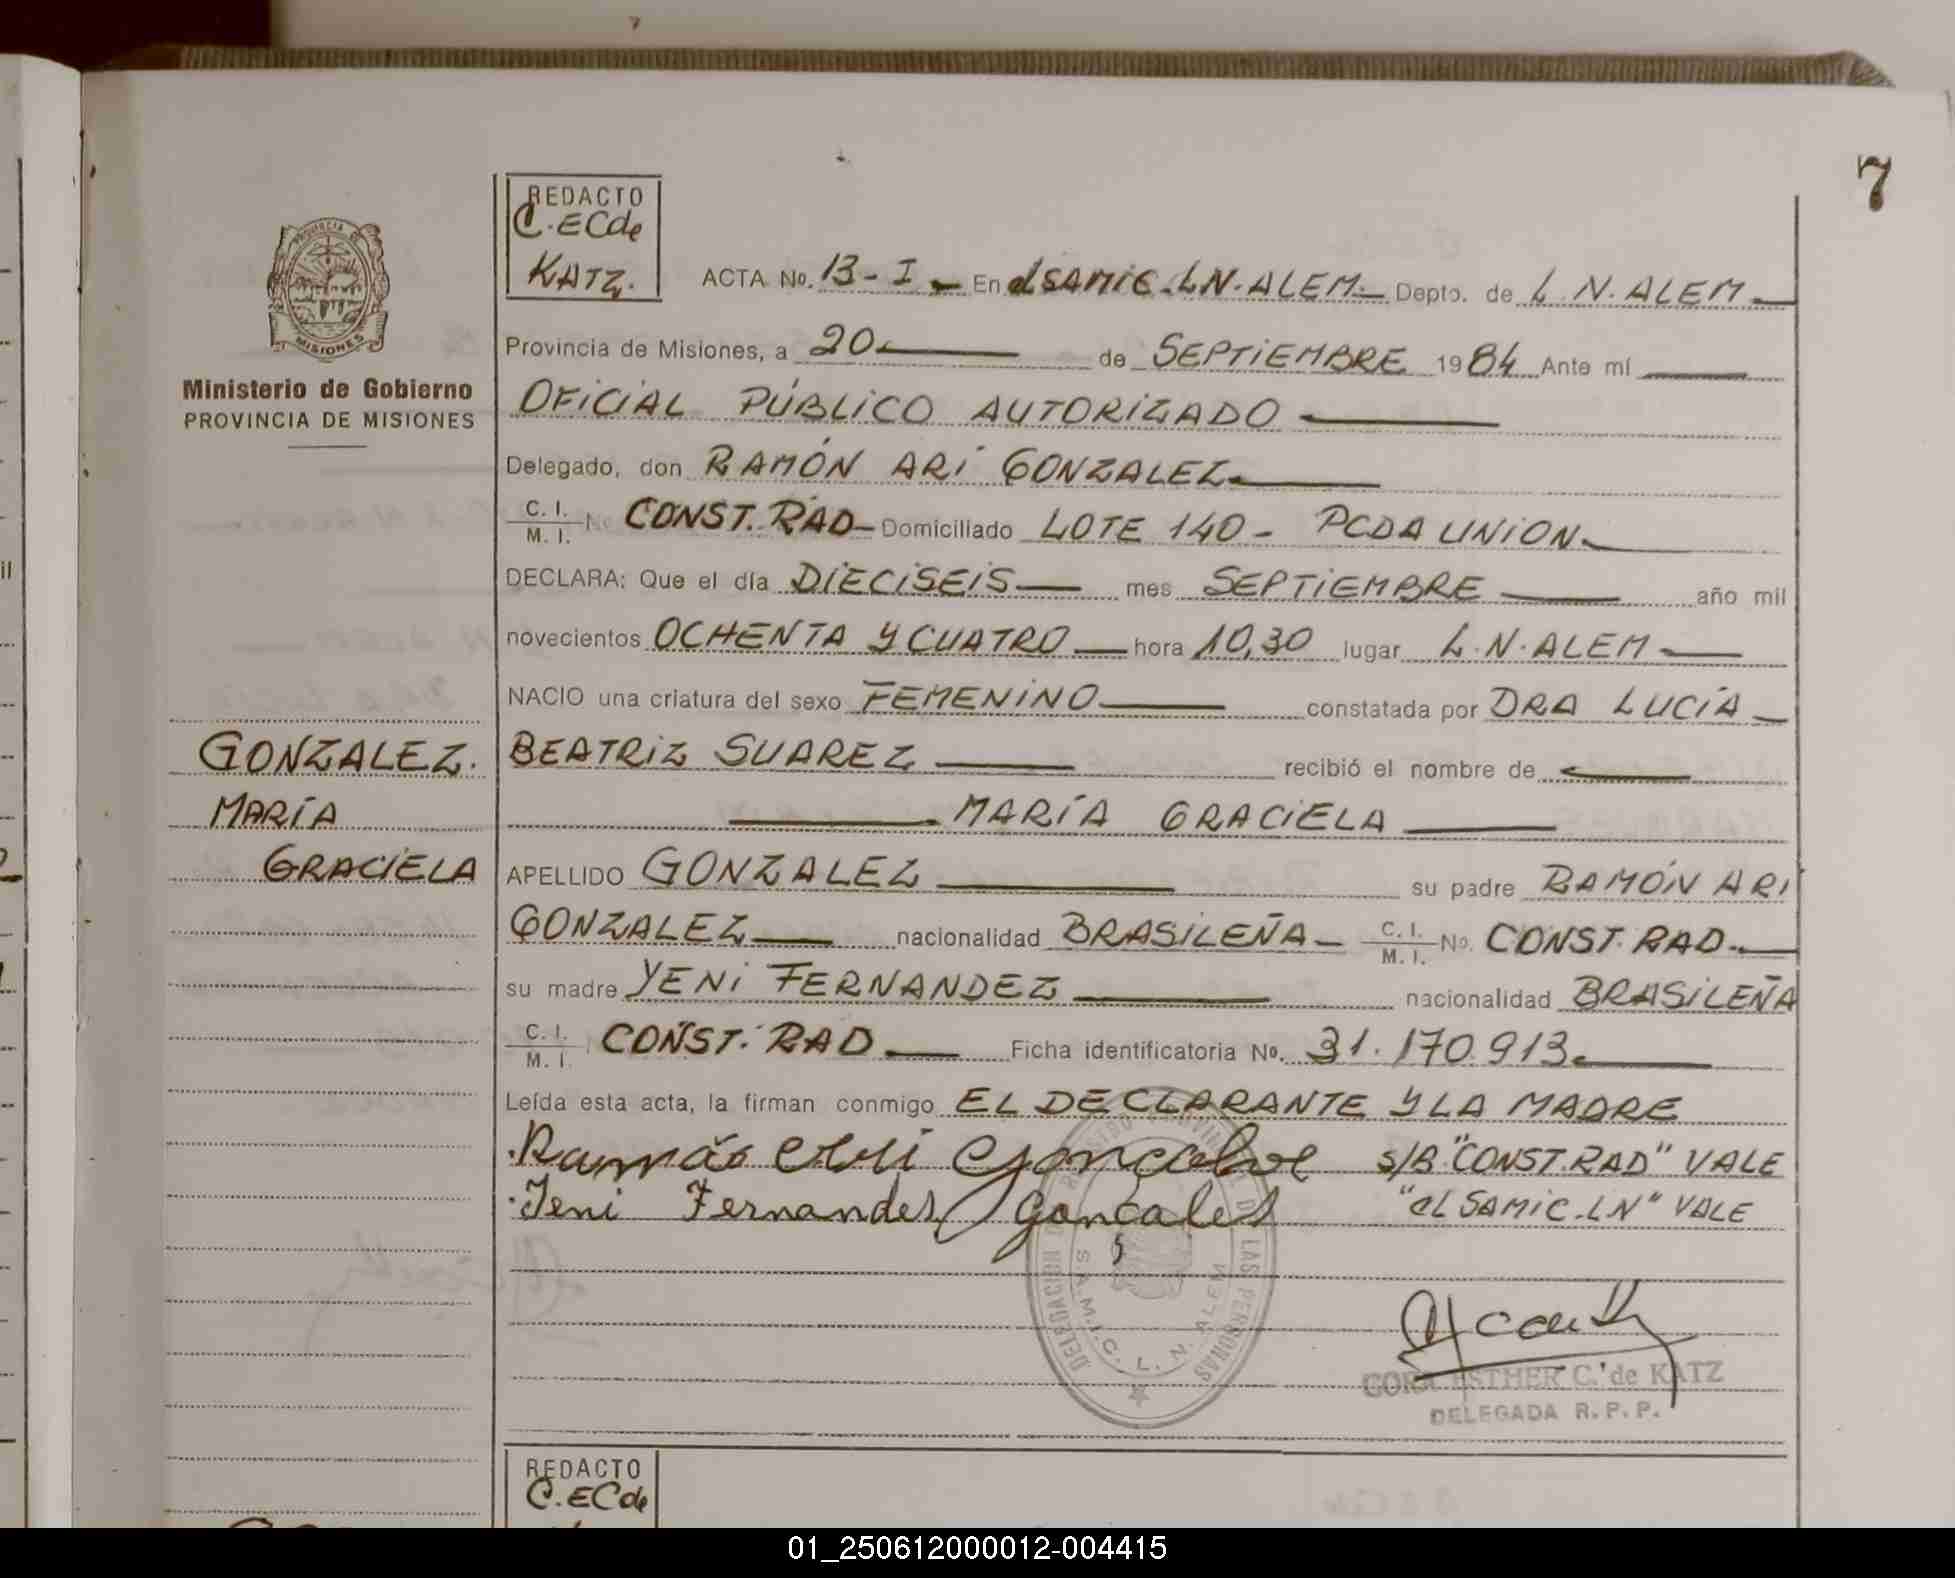 7
REDACTO
C. EC de
KATZ.
ACTA No. 13 - I - En el SAMIC. LN. ALEM. Depto. de L. N. ALEM
PROVINCIA DE
MISIONES
Ministerio de Gobierno
PROVINCIA DE MISIONES
Provincia de Misiones, a 20 de SEPTIEMBRE 1984 Ante mí
OFICIAL PÚBLICO AUTORIZADO
Delegado, don RAMÓN ARI GONZALEZ
C. I. / M. I. No CONST. RAD - Domiciliado LOTE 140 - PCDA UNION
DECLARA: Que el día DIECISEIS mes SEPTIEMBRE año mil
novecientos OCHENTA Y CUATRO hora 10,30 lugar L. N. ALEM
NACIO una criatura del sexo FEMENINO constatada por DRA LUCÍA
BEATRIZ SUAREZ recibió el nombre de
MARÍA GRACIELA
GONZALEZ.
MARÍA
GRACIELA
APELLIDO GONZALEZ su padre RAMÓN ARI
GONZALEZ nacionalidad BRASILEÑA - C. I. / M. I. No. CONST. RAD.
su madre YENI FERNANDEZ nacionalidad BRASILEÑA
C. I. / M. I. CONST. RAD Ficha identificatoria No. 31.170.913
Leída esta acta, la firman conmigo EL DECLARANTE Y LA MADRE
Ramão Gonçalve S/B "CONST. RAD" VALE
Jeni Fernandes Gonçales "el SAMIC. LN" VALE
DELEGACION DE REGISTRO PROVINCIAL DE LAS PERSONAS
S.A.M.I.C. L. N. ALEM
CORA ESTHER C. de KATZ
DELEGADA R. P. P.
REDACTO
C. EC de
01_250612000012-004415